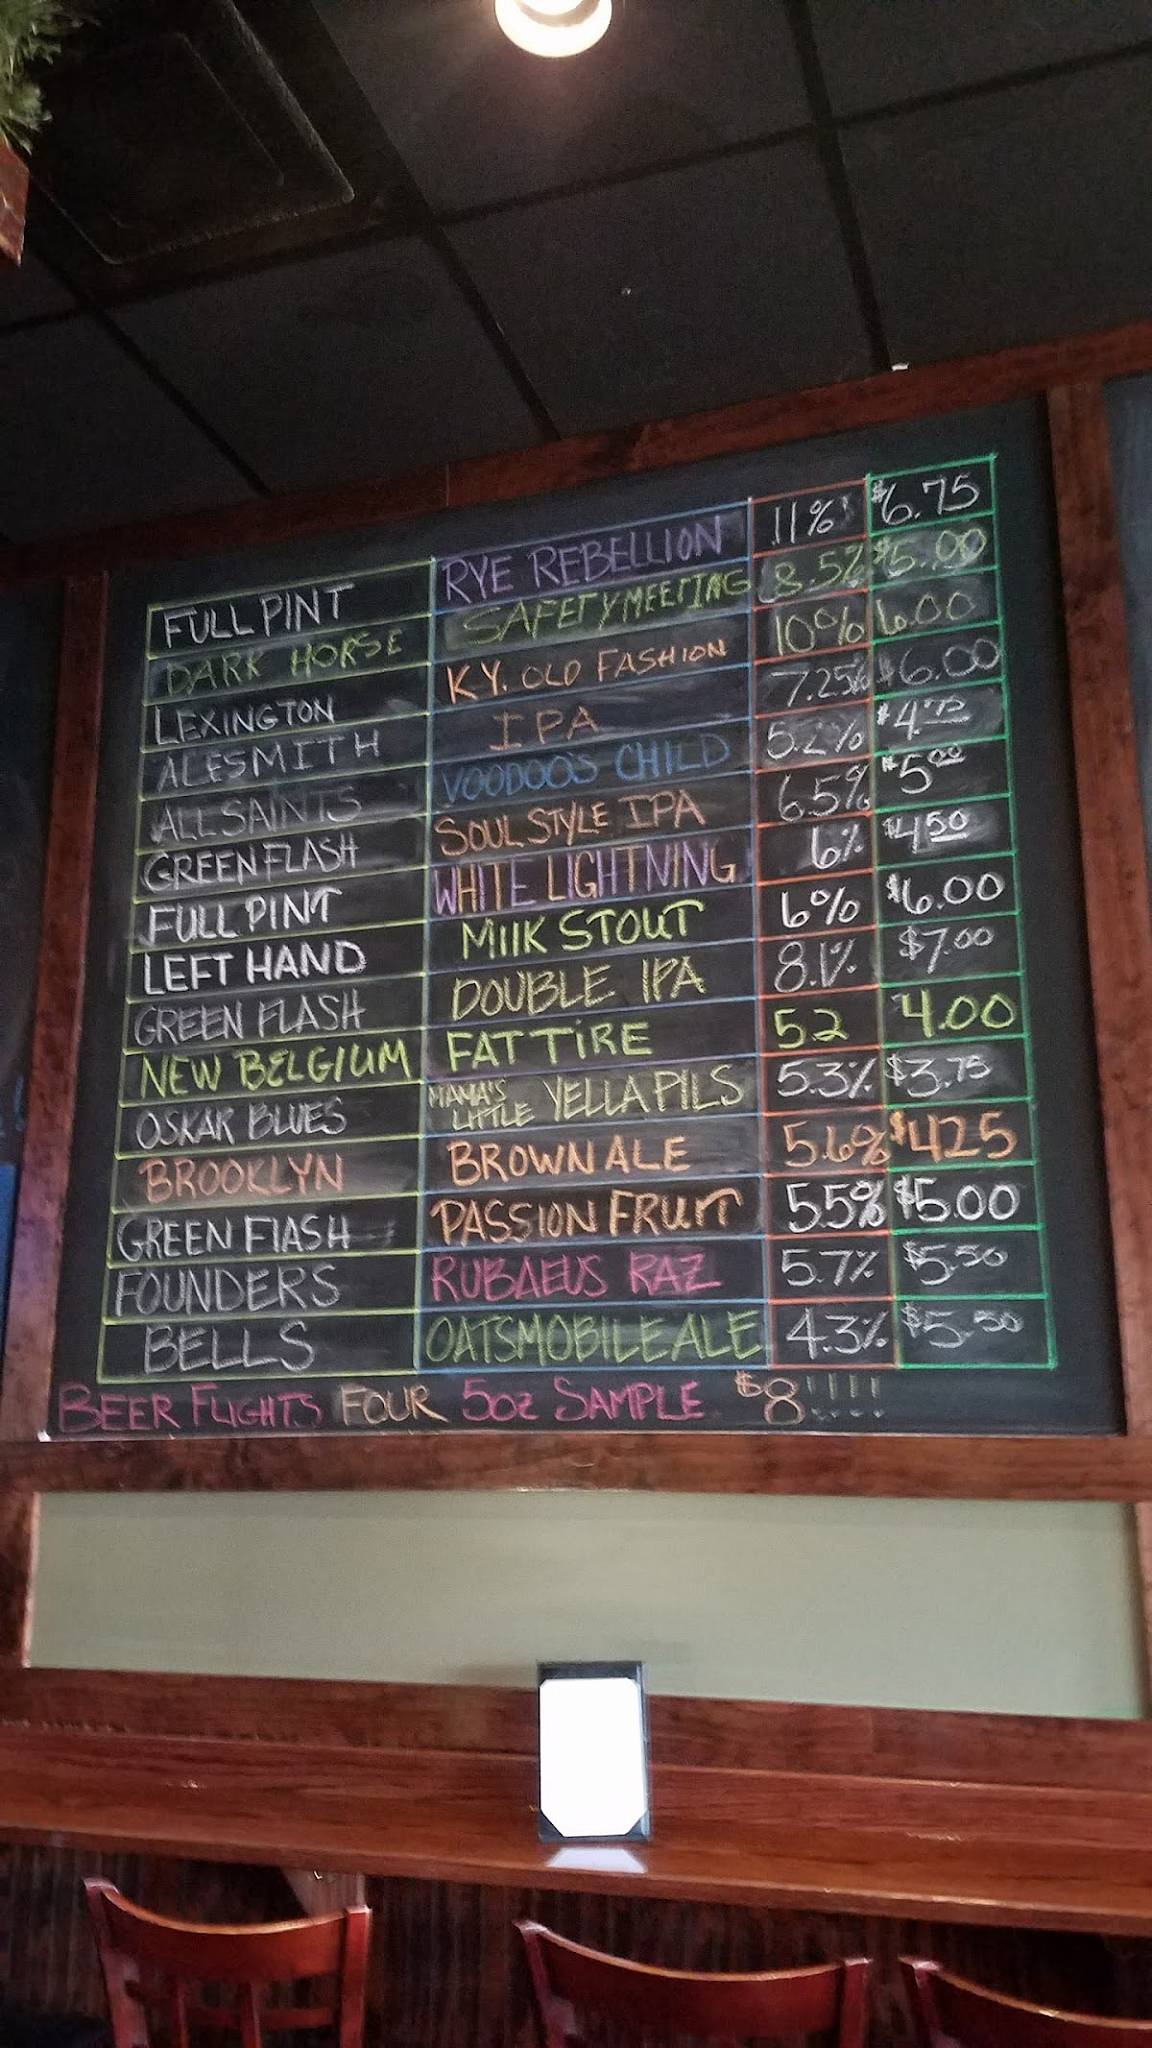 FULL PINT RYE REBELLION 11% $6.75
DARK HORSE SAFETY MEETING 8.5% $5.00
LEXINGTON KY. OLD FASHION 10% 6.00
ALESMITH IPA 7.25% $6.00
ALL SAINTS VOODOOS CHILD 5.2% $4.75
GREEN FLASH SOUL STYLE IPA 6.5% $5.00
FULL PINT WHITE LIGHTNING 6% $4.50
LEFT HAND MILK STOUT 6% $6.00
GREEN FLASH DOUBLE IPA 8.1% $7.00
NEW BELGIUM FAT TIRE 5.2 4.00
OSKAR BLUES MAMA'S LITTLE YELLA PILS 5.3% $3.75
BROOKLYN BROWN ALE 5.6% $4.25
GREEN FLASH PASSION FRUIT 5.5% $5.00
FOUNDERS RUBAEUS RAZ 5.7% $5.50
BELLS OATSMOBILE ALE 4.3% $5.50
BEER FLIGHTS FOUR 5oz SAMPLE $8!!!!